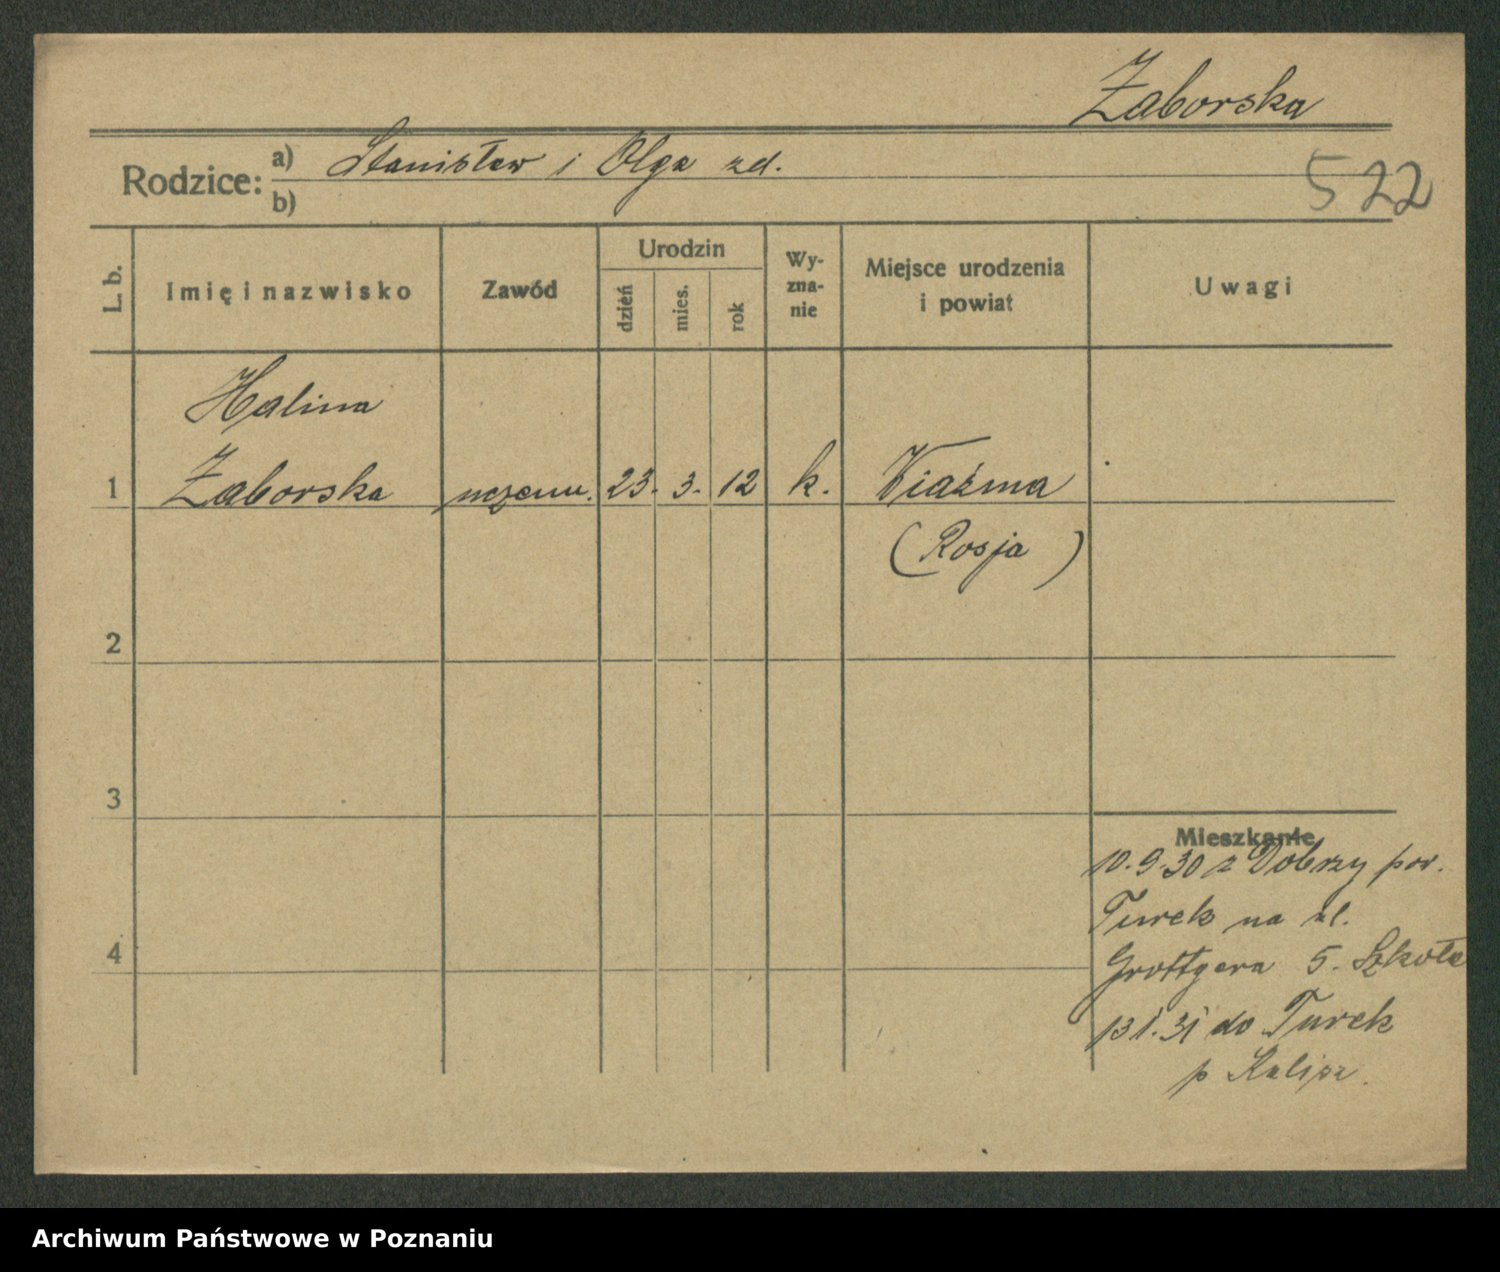 Żaborska
Rodzice: a) Stanisław i Olga zd.
b)
522
L. b. Imię i nazwisko Zawód Urodzin dzień mies. rok Wy-zna-nie Miejsce urodzenia i powiat Uwagi
Halina
1 Żaborska uczenn. 23. 3. 12 k. Wiaźma
(Rosja)
2
3
Mieszkanie
10.9.30 z Dobrzy pow.
Turek na ul.
4
Grottgera 5. Szkoła
13 1.31 do Turek
p Kalisz.
Archiwum Państwowe w Poznaniu